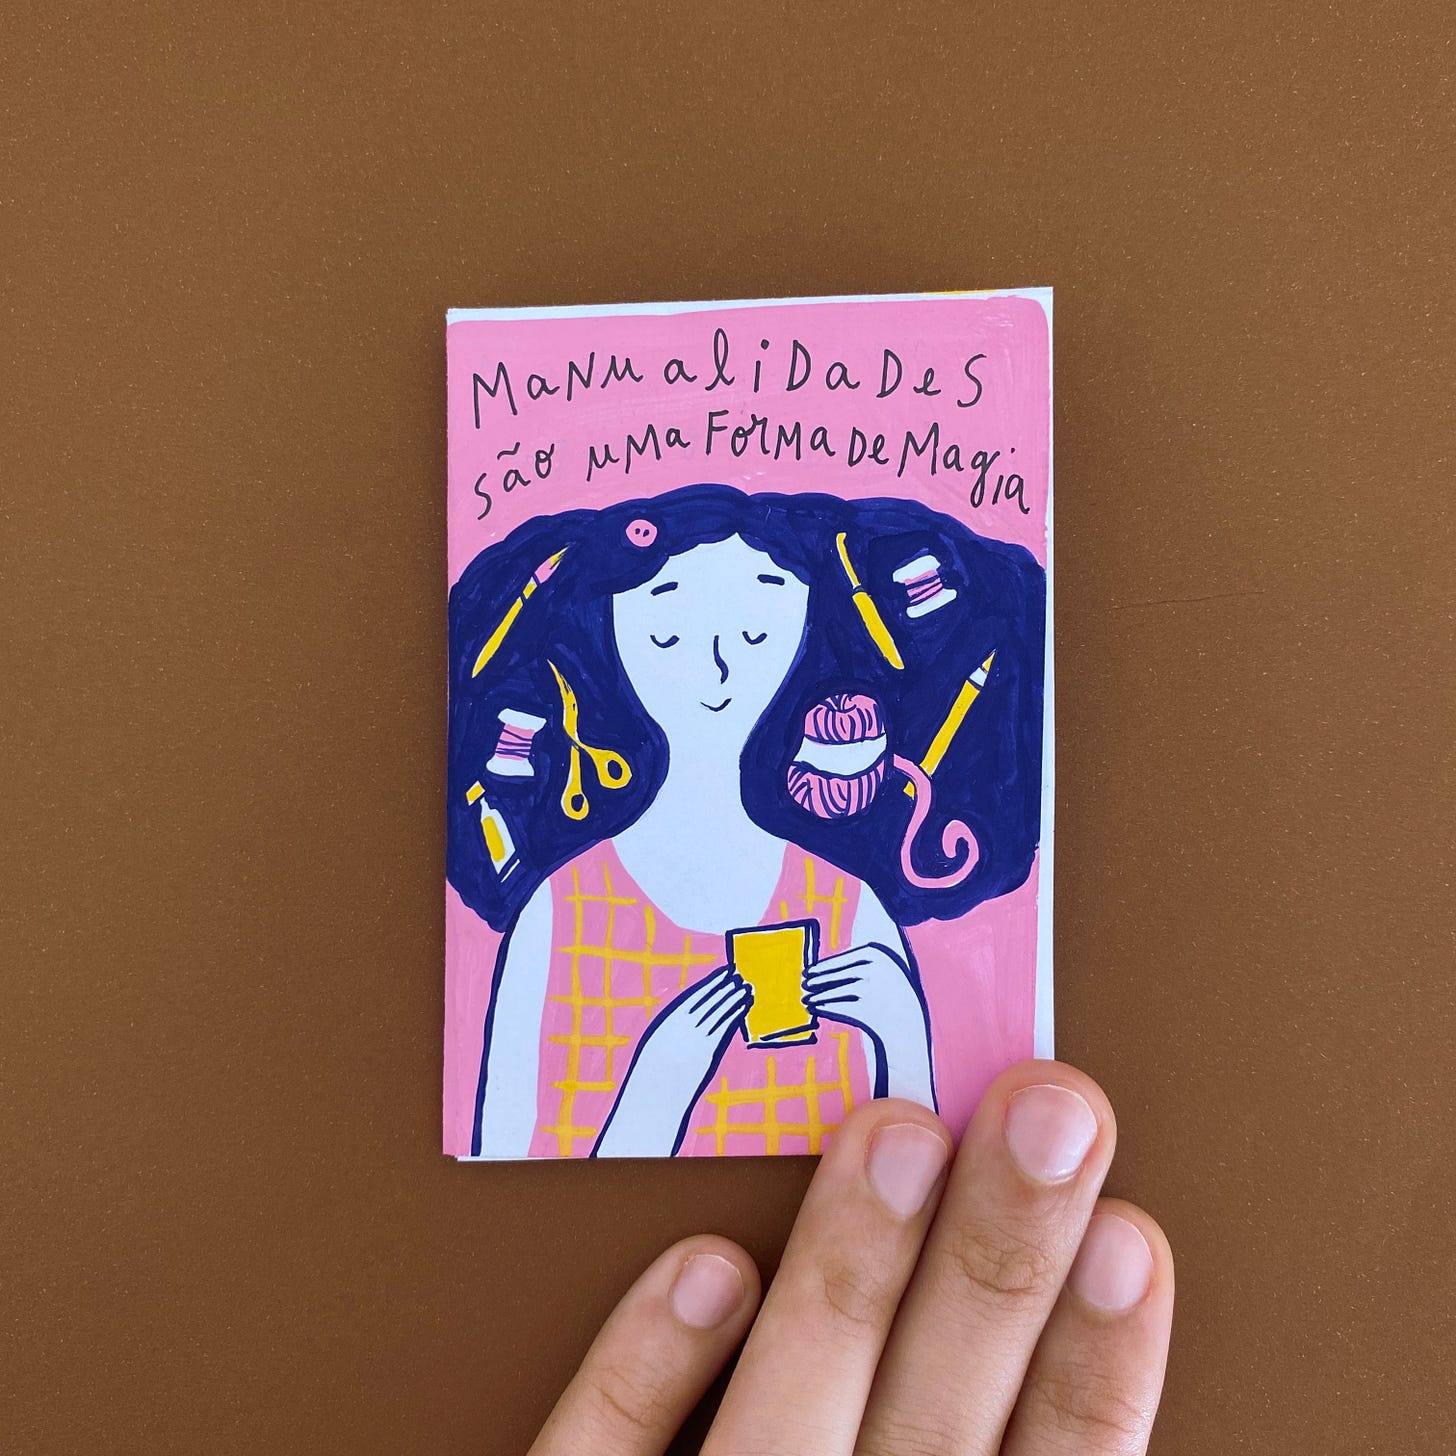 Manualidades
são uma forma de magia